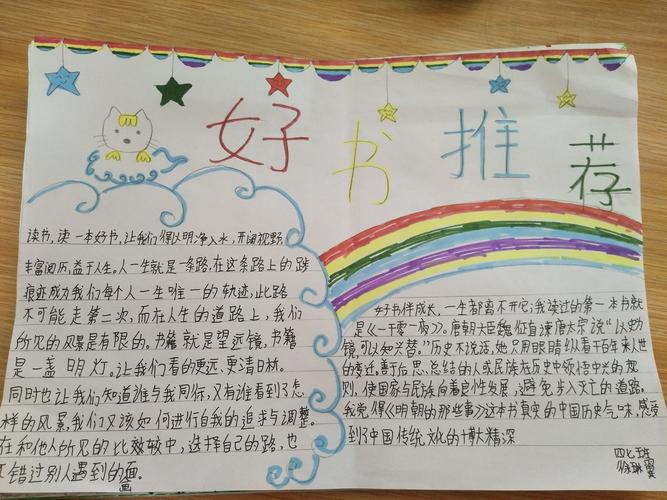 好书推荐
读书,读一本好书,让我们得以明净入水,开阔视野,
丰富阅历,益于人生。人一生就是一条路,在这条路上的跋
痕迹成为我们每个人一生唯一的轨迹,此路
不可能走第二次,而在人生的道路上,我们
所见的风景是有限的。书籍就是望远镜,书籍
是一盏明灯。让我们看的更远、更清日林。
同时也让我们知道谁与我同行,又有谁看到了怎
样的风景,我们又该如何进行自我的追求与调整。
在和他人所见的比较中,选择自己的路,也
错过别人遇到的面。
画
好书伴成长,一生都离不开它;我读过的第一本书就
是《一千零一夜》。唐朝大臣魏征自谏唐太宗说“以史为
镜,可以知兴替。”历史不说话,她只用眼睛纵看千百年来人世
的变迁,善于后思、总结的人或民族在历史中领悟中兴的规
则,使国家与民族向着良性发展,避免步入灭亡的道路。
我觉得《明朝的那些事》这本书真实的中国历史气味,感受
到了中国传统文化的博大精深
四七班
徐琳